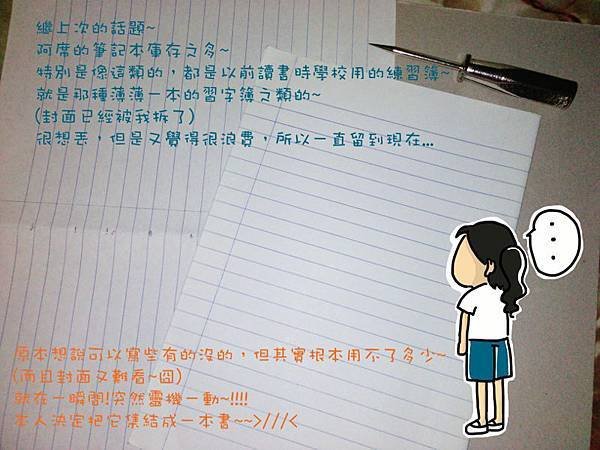 繼上次的話題~
阿席的筆記本庫存之多~
特別是像這類的，都是以前讀書時學校用的練習簿~
就是那種薄薄一本的習字簿之類的~
(封面已經被我拆了)
很想丟，但是又覺得很浪費，所以一直留到現在...
原本想說可以寫些有的沒的，但其實根本用不了多少~
(而且封面又難看~囧)
就在一瞬間!突然靈機一動~!!!!
本人決定把它集結成一本書~~>///<